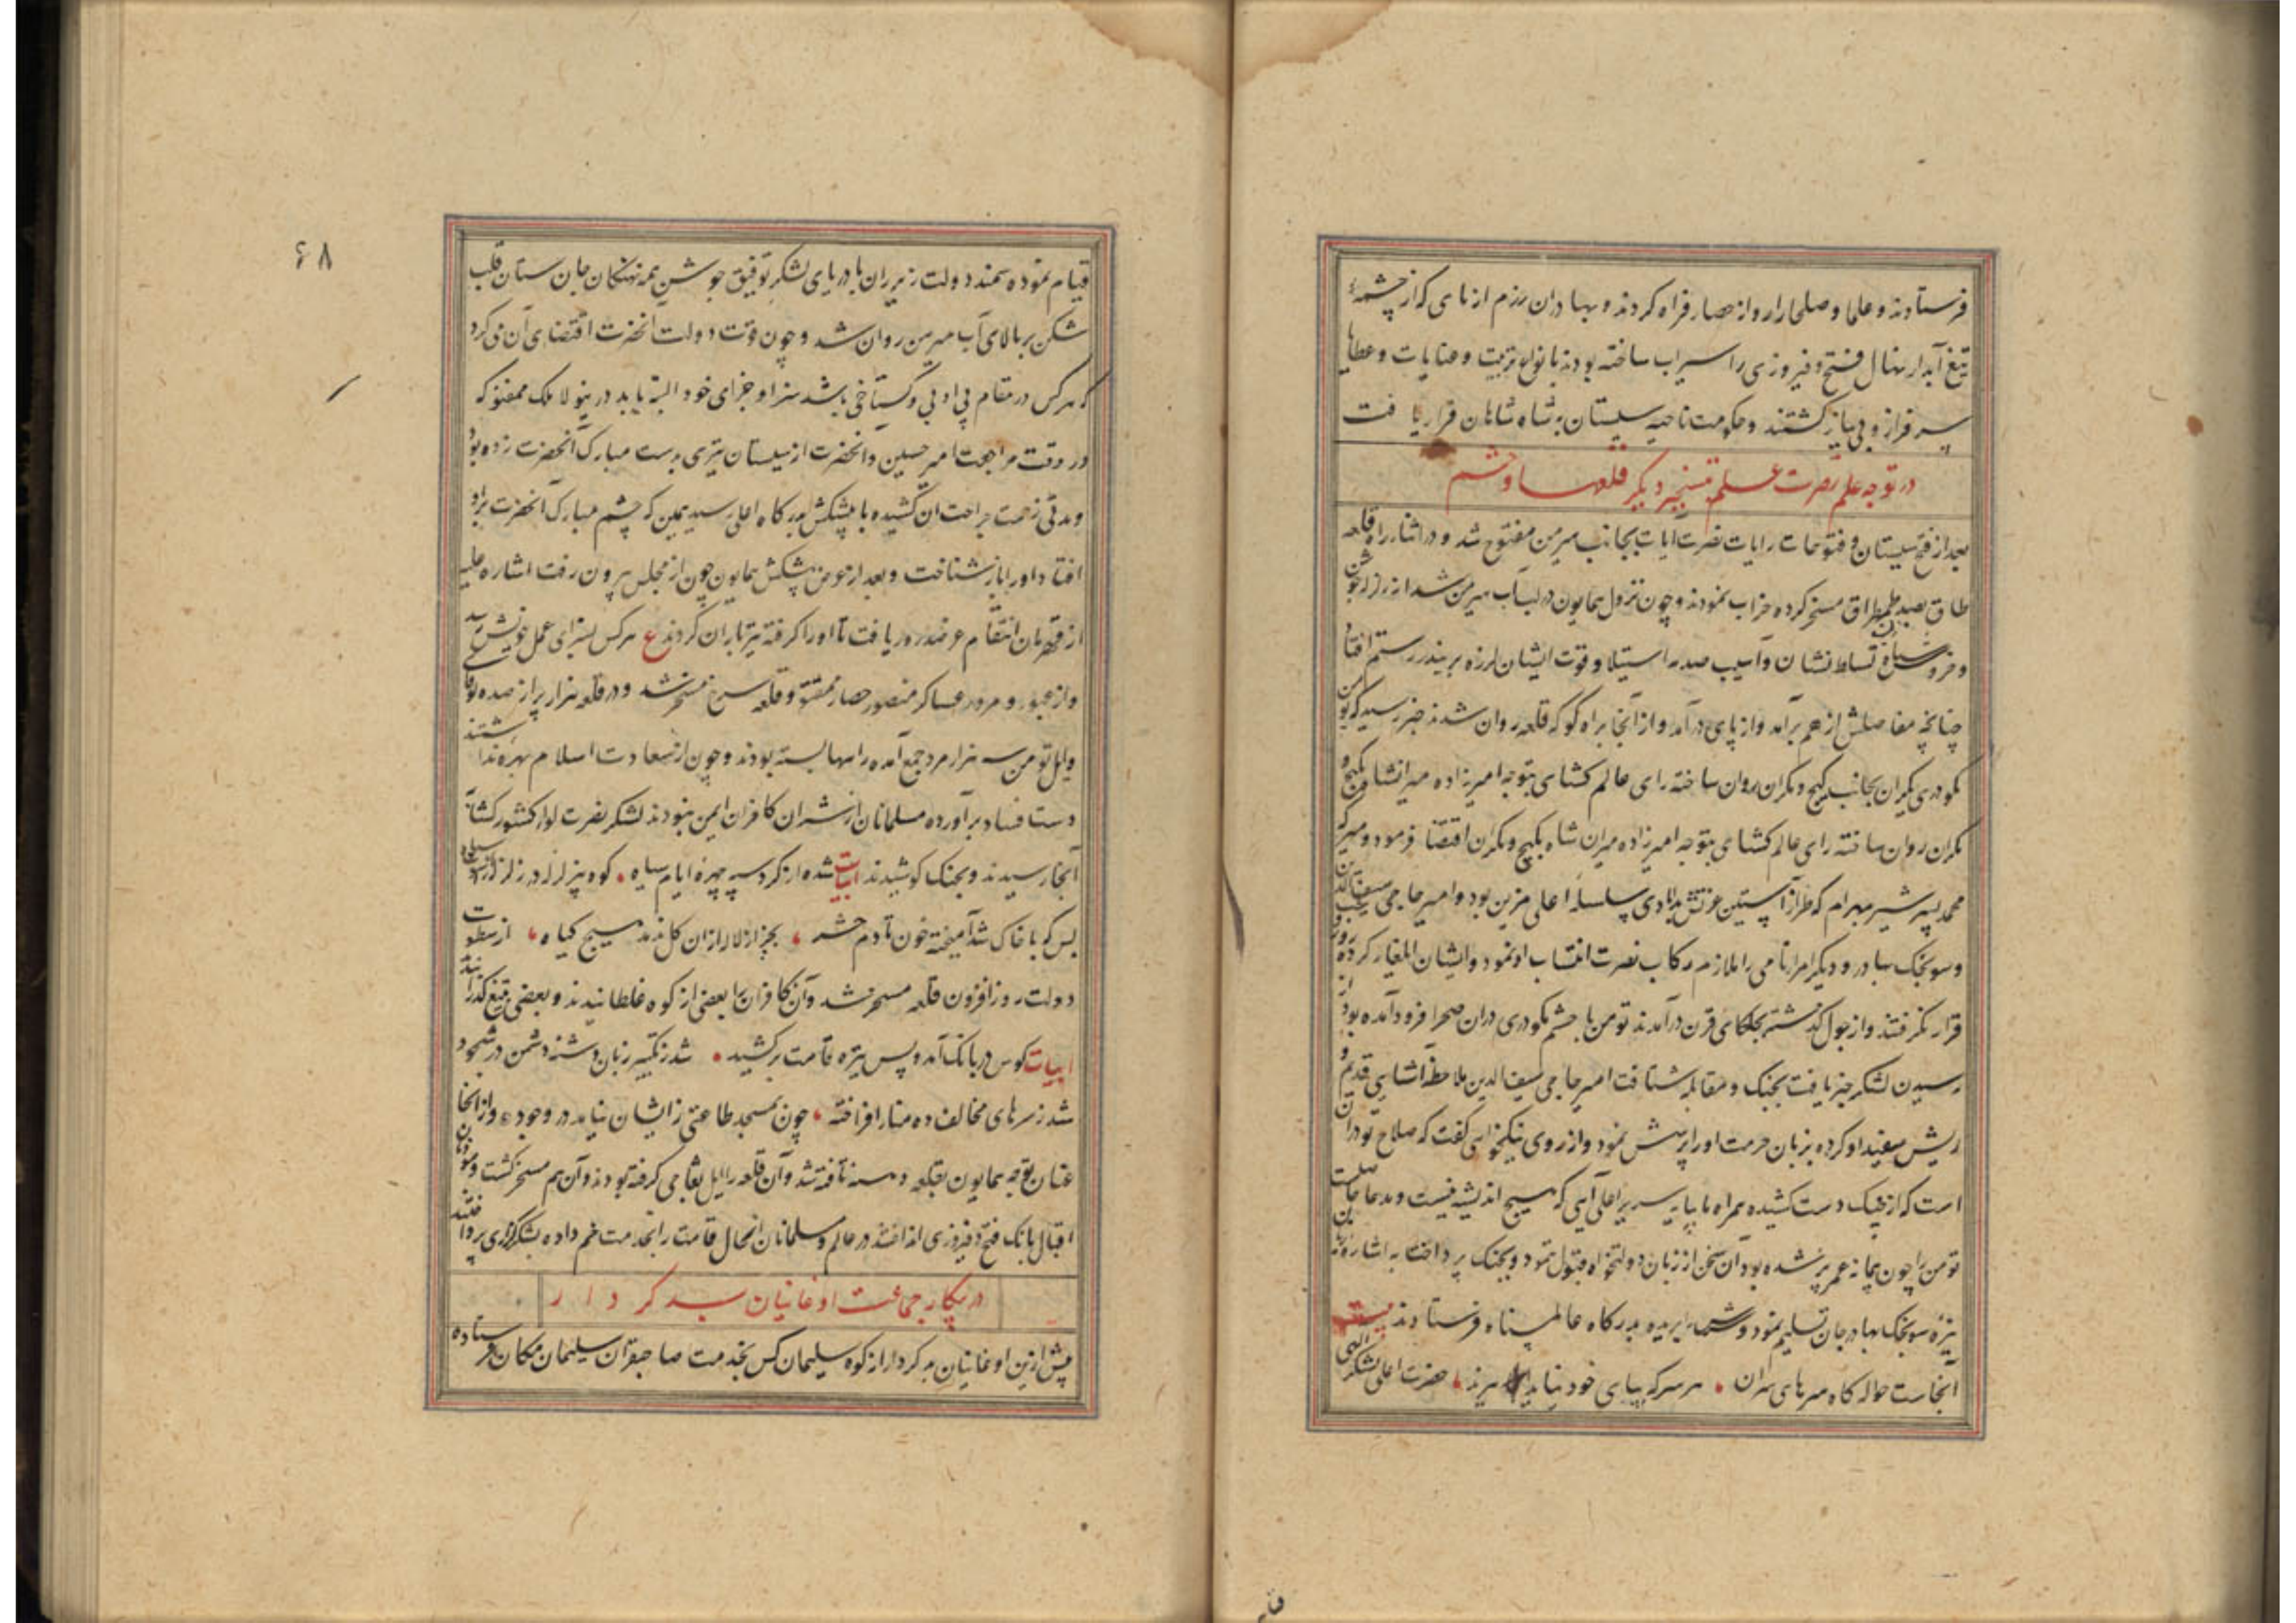 فرستادند و علما و صلحا را روانه حصار فراه کردند و بهادران رزم ازنای که از چشمهٔ
تیغ آبدار نهال فتح و فیروزی را سیراب ساخته بودند بانواع تربیت و عنایات و عطایا
سرفراز و بی نیاز گشتند و حکومت ناحیه سیستان به شاه شاهان قرار یافت
در توجه علم نصرت تسخیر دیگر قلعها و حشم
بعد از فتح سیستان و فتوحات رایات نصرت آیات بجانب میرمن مفتوح شد و در اثنا راه قلعه
طاق بصد طمطراق مسخر کرده خراب نمودند و چون نزول همایون در لب آب هیرمن شد از زلزله جوش
و خروش سپاه تسلط نشان و آسیب صدر استیلا و قوت ایشان لرزه بر بند رستم افتاد
چنانچه مفاصلش از هم برآمد و از پای درآمد و از آنجا براه کوکه قلعه روان شدند خبر رسید که تومن
نکودری بکران بجانب کیج و مکران روان ساخته رای عالم کشای بتوجه امیرزاده میرانشاه بکیج و
مکران روان ساخته رای عالم کشای بتوجه امیرزاده میران شاه بکیج و مکران اقتضا فرمود و میر
محمد پسر شیر بهرام که طراز آستین عزتش بدامادی سلسلهٔ اعلی مزین بود و امیر حاجی سیف الدین
و سونجک بهادر و دیگر امرا نامی را ملازم رکاب نصرت انتساب او نمود و ایشان ایلغار کرده
قرار نگرفتند و از جول گذشته بجلکای قرن درآمدند تومن با حشم نکودری در ان صحرا فرود آمده بود از
رسیدن لشکر خبر یافت بجنک و مقابله شتافت امیر حاجی سیف الدین ملاحظه آشنایی قدیم و
ریش سفید او کرده بزبان حرمت او را پرسش نمود و از روی نیکخواهی گفت که صلاح تو در آن
است که از جنک دست کشیده همراه ما بپایه سریر اعلی آیی که هیچ اندیشه نیست و مدعا حاصلست
تومن را چون پیمانه عمر پر شده بود آن سخن از زبان دولتخواه قبول ننمود و بجنک پرداخت به اشاره
نیزه سونجک بهادر جان تسلیم نمود و سرش بریده بدرکاه عالم پناه فرستادند بیت
آنجاست حواله کاه سرهای سران • هر سر که بپای خود نیاید ببرند • حضرت اعلی لشکر
۶۸
قیام نموده سمند دولت زیر ران با دریای لشکر توفیق جوشن همه نهنکان جان ستان قلب
شکن بر بالای آب هیرمن روان شد و چون قوت دولت آنحضرت اقتضای آن می کرد
که هرکس در مقام بی ادبی و گستاخی باشد سزا و جزای خود البته یابد درینولا ملک ممقتو که
در وقت مراجعت امیر حسین و آنحضرت از سیستان تیری بدست مبارک آنحضرت زده بود
و مدتی زحمت جراحت ان کشیده با پیشکش بدرکاه اعلی رسید همین که چشم مبارک آنحضرت براو
افتاد او را باز شناخت و بعد از عرض پیشکش همایون چون از مجلس بیرون رفت اشاره علیه
از قهرمان انتقام عرضدور یافت تا او را گرفته تیرباران کردند ع هرکس بسزای عمل خویش رسید
و از عبور و مرور عساکر منصور حصار ممقتو و قلعه سرخ مسخر شد و در قلعه هزار پر از صده
و ایل تومن سه هزار مرد جمع آمده راهها بسته بودند و چون از سعادت اسلام بهره نداشتند
دست فساد برآورده مسلمانان از شر ان کافران ایمن نبودند لشکر نصرت لوا کشور کشا
آنجا رسیدند و بجنک کوشیدند ابیات شده از کرد سیه چهرهٔ ایام سیاه • کوه پر زلزله در زلزله از
بس که با خاک شد آمیخته خون تا دم حشر • بجز از لاله ازان کل ندمد هیچ کیاه • از سطوت
دولت روز افزون قلعه مسخر شد و آن کافران را بعضی از کوه غلطانیدند و بعضی بتیغ گذرانیدند
ابیات کوس در بانک آمد و پس نیزه قامت برکشید • شد ز تکبیر زبان دشنه دشمن در سجود
شد ز سرهای مخالف ده منار افراخته • چون بمسجد طاعتی زیشان نیامد در وجود • و از آنجا
عنان توجه همایون بقلعه دهنه تافته شد و آن قلعه را ایل بغاجی گرفته بودند و آن هم مسخر گشت و
اقبال بانک فتح و فیروزی انداختند در عالم و مسلمانان انحال قامت را بخدمت خم داده بشکرگزاری پرداختند
در پیکار جماعت اوغانیان بد کردار
پیش ازین اوغانیان بدکردار از کوه سلیمان کس بخدمت صاحبقران سلیمان مکان فرستاده